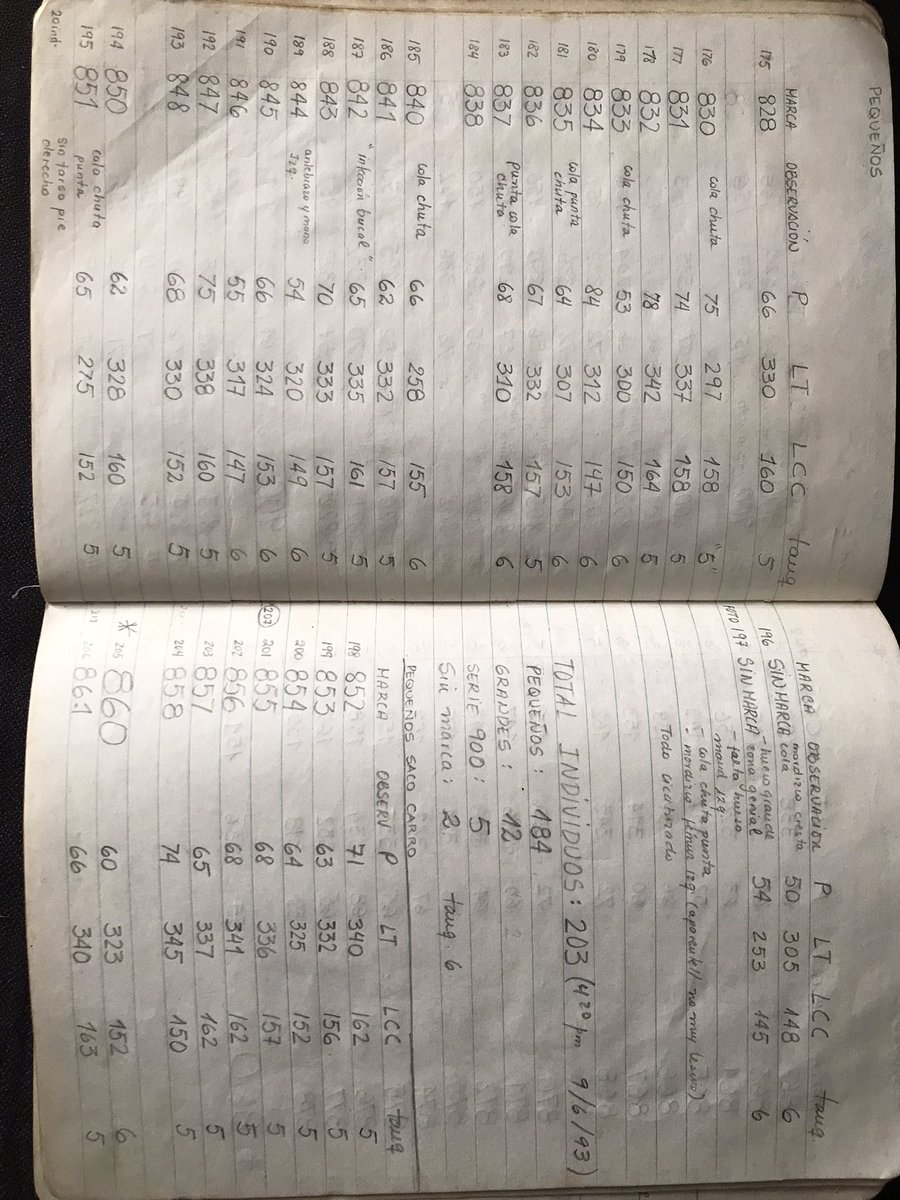 PEQUEÑOS
MARCA OBSERVACIÓN P LT LCC tanq
175 828 66 330 160 5
176 830 cola chuta 75 297 158 "5"
177 831 74 337 158 5
178 832 78 342 164 5
179 833 cola chuta 53 300 150 6
180 834 84 312 147 6
181 835 cola punta chuta 64 307 153 6
182 836 67 332 157 5
183 837 punta cola chuta 68 310 158 6
184 838
185 840 cola chuta 66 258 155 6
186 841 62 332 157 5
187 842 "infección bucal" 65 335 161 5
188 843 70 333 157 5
189 844 antebrazo y mano Izq. 54 320 149 6
190 845 66 324 153 6
191 846 55 317 147 6
192 847 75 338 160 5
193 848 68 330 152 5
194 850 62 328 160 5
20 ind. 195 851 cola chuta punta 65 275 152 5
sin torso pie derecho
MARCA OBSERVACION P LT LCC tanq
196 SIN MARCA mordizco cresta cola 50 305 148 6
197 SIN MARCA - hueso grande zona genial 54 253 145 6
- falta hueso
- cola chuta punta
- mordizco femur izq (aparente// no muy
Todo cicatrizado
TOTAL INDIVIDUOS: 203 (4 20 pm 9/6/93)
PEQUEÑOS: 184
GRANDES: 12
SERIE 900: 5
Sin marca: 2 tanq 6
PEQUEÑOS SACO CARRO
MARCA OBSERV P LT LCC tanq
198 852 71 340 162 5
199 853 63 332 156 5
200 854 64 325 152 5
207 201 855 68 336 157 5
202 856 68 341 162 5
203 857 65 337 162 5
204 858 74 345 150 5
* 205 860 60 323 152 6
206 861 66 340 163 5